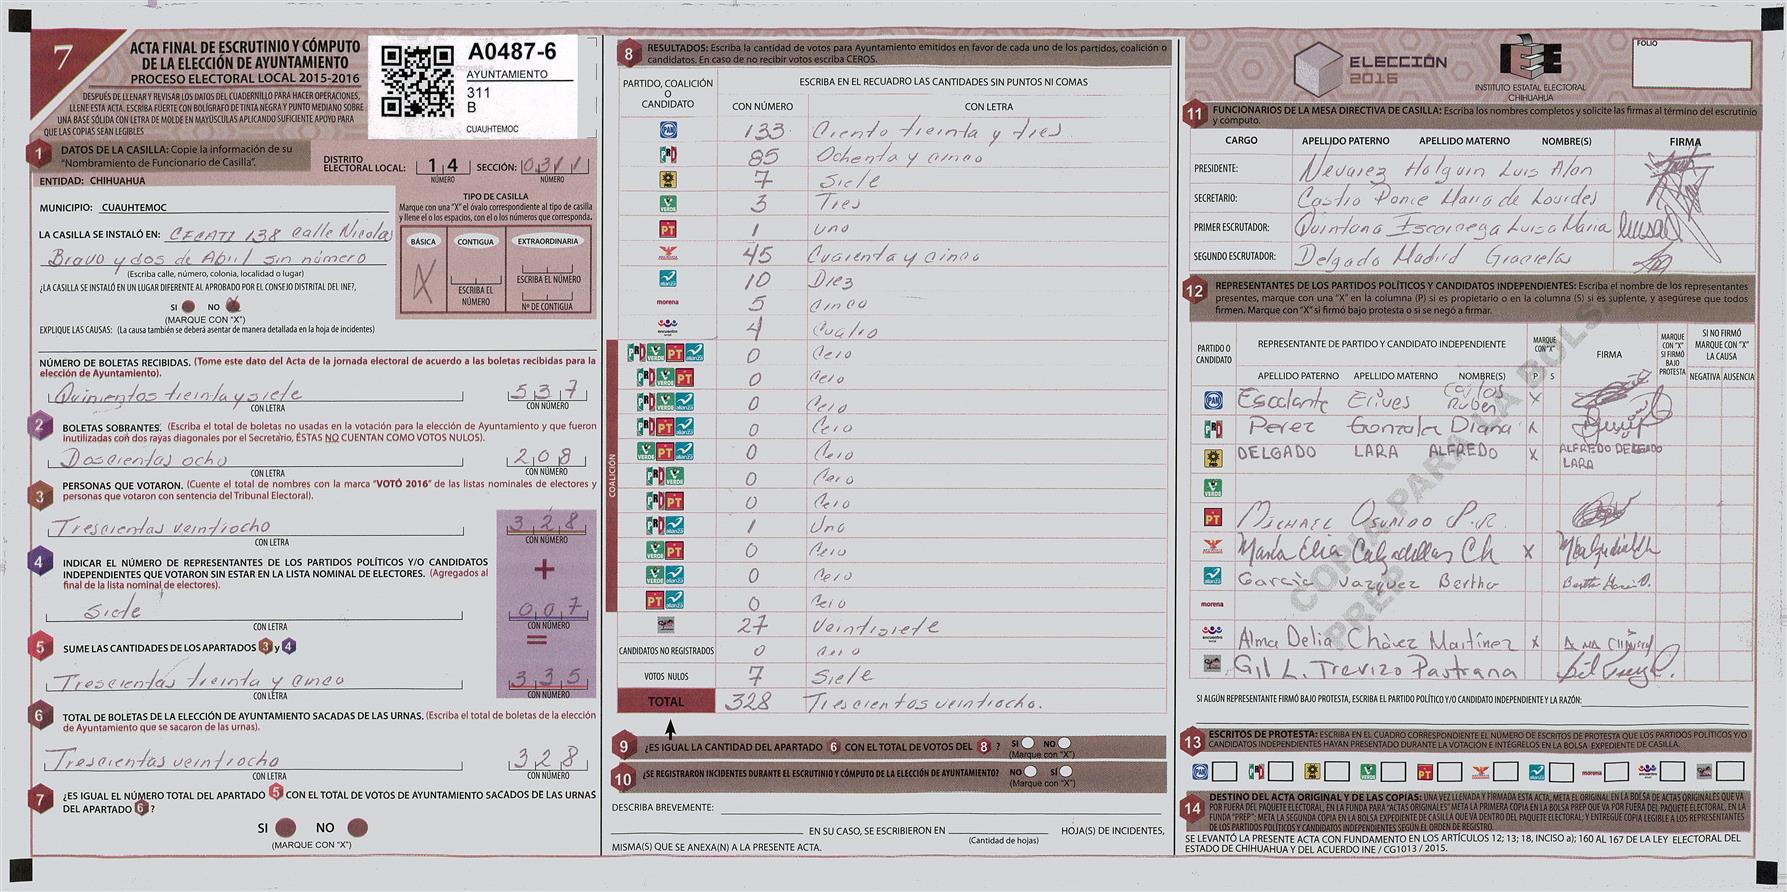 7
ACTA FINAL DE ESCRUTINIO Y CÓMPUTO
DE LA ELECCIÓN DE AYUNTAMIENTO
PROCESO ELECTORAL LOCAL 2015-2016
DESPUÉS DE LLENAR Y REVISAR LOS DATOS DEL CUADERNILLO PARA HACER OPERACIONES,
LLENE ESTA ACTA. ESCRIBA FUERTE CON BOLÍGRAFO DE TINTA NEGRA Y PUNTO MEDIANO SOBRE
UNA BASE SÓLIDA CON LETRA DE MOLDE EN MAYÚSCULAS APLICANDO SUFICIENTE APOYO PARA
QUE LAS COPIAS SEAN LEGIBLES
A0487-6
AYUNTAMIENTO
311
B
CUAUHTEMOC
1 DATOS DE LA CASILLA: Copie la información de su
"Nombramiento de Funcionario de Casilla".
DISTRITO ELECTORAL LOCAL: 14 NÚMERO SECCIÓN: 0311 NÚMERO
ENTIDAD: CHIHUAHUA
MUNICIPIO: CUAUHTEMOC
LA CASILLA SE INSTALÓ EN: CECATI 138 Calle Nicolas
Bravo y dos de Abril sin número
(Escriba calle, número, colonia, localidad o lugar)
¿LA CASILLA SE INSTALÓ EN UN LUGAR DIFERENTE AL APROBADO POR EL CONSEJO DISTRITAL DEL INE?,
SI NO X
(MARQUE CON "X")
EXPLIQUE LAS CAUSAS: (La causa también se deberá asentar de manera detallada en la hoja de incidentes)
TIPO DE CASILLA
Marque con una "X" el óvalo correspondiente al tipo de casilla
y llene el o los espacios, con el o los números que corresponda.
BÁSICA CONTIGUA EXTRAORDINARIA
X
ESCRIBA EL NÚMERO
ESCRIBA EL NÚMERO
Nº DE CONTIGUA
NÚMERO DE BOLETAS RECIBIDAS. (Tome este dato del Acta de la jornada electoral de acuerdo a las boletas recibidas para la
elección de Ayuntamiento).
Quinientos treinta y siete 537
CON LETRA CON NÚMERO
2 BOLETAS SOBRANTES. (Escriba el total de boletas no usadas en la votación para la elección de Ayuntamiento y que fueron
inutilizadas con dos rayas diagonales por el Secretario, ÉSTAS NO CUENTAN COMO VOTOS NULOS).
Doscientas ocho 208
CON LETRA CON NÚMERO
3 PERSONAS QUE VOTARON. (Cuente el total de nombres con la marca "VOTÓ 2016" de las listas nominales de electores y
personas que votaron con sentencia del Tribunal Electoral).
Trescientas veintiocho 328
CON LETRA CON NÚMERO
4 INDICAR EL NÚMERO DE REPRESENTANTES DE LOS PARTIDOS POLÍTICOS Y/O CANDIDATOS
INDEPENDIENTES QUE VOTARON SIN ESTAR EN LA LISTA NOMINAL DE ELECTORES. (Agregados al
final de la lista nominal de electores).
+
Siete 007
CON LETRA CON NÚMERO
=
5 SUME LAS CANTIDADES DE LOS APARTADOS 3 y 4
Trescientas treinta y cinco 335
CON LETRA CON NÚMERO
6 TOTAL DE BOLETAS DE LA ELECCIÓN DE AYUNTAMIENTO SACADAS DE LAS URNAS. (Escriba el total de boletas de la elección
de Ayuntamiento que se sacaron de las urnas).
Trescientas veintiocho 328
CON LETRA CON NÚMERO
7 ¿ES IGUAL EL NÚMERO TOTAL DEL APARTADO 5 CON EL TOTAL DE VOTOS DE AYUNTAMIENTO SACADOS DE LAS URNAS
DEL APARTADO 6?
SI NO
(MARQUE CON "X")
8 RESULTADOS: Escriba la cantidad de votos para Ayuntamiento emitidos en favor de cada uno de los partidos, coalición o
candidatos. En caso de no recibir votos escriba CEROS.
PARTIDO, COALICIÓN O CANDIDATO
ESCRIBA EN EL RECUADRO LAS CANTIDADES SIN PUNTOS NI COMAS
CON NÚMERO CON LETRA
PAN 133 Ciento treinta y tres
PRI 85 Ochenta y cinco
PRD 7 Siete
VERDE 3 Tres
PT 1 uno
45 Cuarenta y cinco
alianza 10 Diez
morena 5 cinco
encuentro social 4 Cuatro
COALICIÓN
PRI VERDE PT alianza 0 Cero
PRI VERDE PT 0 Cero
PRI VERDE alianza 0 Cero
PRI PT alianza 0 Cero
VERDE PT alianza 0 Cero
PRI VERDE 0 Cero
PRI PT 0 Cero
PRI alianza 1 Uno
VERDE PT 0 Cero
VERDE alianza 0 Cero
PT alianza 0 Cero
27 Veintisiete
CANDIDATOS NO REGISTRADOS 0 cero
VOTOS NULOS 7 Siete
TOTAL 328 Trescientos veintiocho.
9 ¿ES IGUAL LA CANTIDAD DEL APARTADO 6 CON EL TOTAL DE VOTOS DEL 8? SI NO
(Marque con "X")
10 ¿SE REGISTRARON INCIDENTES DURANTE EL ESCRUTINIO Y CÓMPUTO DE LA ELECCIÓN DE AYUNTAMIENTO? NO SÍ
(Marque con "X")
DESCRIBA BREVEMENTE:
EN SU CASO, SE ESCRIBIERON EN HOJA(S) DE INCIDENTES,
(Cantidad de hojas)
MISMA(S) QUE SE ANEXA(N) A LA PRESENTE ACTA.
ELECCIÓN
2016
IEE
INSTITUTO ESTATAL ELECTORAL
CHIHUAHUA
FOLIO
11 FUNCIONARIOS DE LA MESA DIRECTIVA DE CASILLA: Escriba los nombres completos y solicite las firmas al término del escrutinio
y cómputo.
CARGO APELLIDO PATERNO APELLIDO MATERNO NOMBRE(S) FIRMA
PRESIDENTE: Nevarez Holguin Luis Alan
SECRETARIO: Castro Ponce Maria de Lourdes
PRIMER ESCRUTADOR: Quintana Escarcega Luisa Maria
SEGUNDO ESCRUTADOR: Delgado Madrid Graciela
12 REPRESENTANTES DE LOS PARTIDOS POLÍTICOS Y CANDIDATOS INDEPENDIENTES: Escriba el nombre de los representantes
presentes, marque con una "X" en la columna (P) si es propietario o en la columna (S) si es suplente, y asegúrese que todos
firmen. Marque con "X" si firmó bajo protesta o si se negó a firmar.
PARTIDO O CANDIDATO
REPRESENTANTE DE PARTIDO Y CANDIDATO INDEPENDIENTE
MARQUE CON "X"
FIRMA
MARQUE CON "X" SI FIRMÓ BAJO PROTESTA
SI NO FIRMÓ MARQUE CON "X" LA CAUSA
APELLIDO PATERNO APELLIDO MATERNO NOMBRE(S) P S NEGATIVA AUSENCIA
PAN Escalante Erives Carlos Ruben X
PRI Perez Gonzala Diana X
PRD DELGADO LARA ALFREDO X ALFREDO DELGADO LARA
VERDE
PT MICHAEL OSVALDO P.R.
María Elia Calzadillas Ch X
alianza Garcia Vazquez Bertha
morena
encuentro social Alma Delia Chávez Martínez X
Gil L. Trevizo Pastrana
COPIA PARA LA BOLSA
PREP
SI ALGÚN REPRESENTANTE FIRMÓ BAJO PROTESTA, ESCRIBA EL PARTIDO POLÍTICO Y/O CANDIDATO INDEPENDIENTE Y LA RAZÓN:
13 ESCRITOS DE PROTESTA: ESCRIBA EN EL CUADRO CORRESPONDIENTE EL NÚMERO DE ESCRITOS DE PROTESTA QUE LOS PARTIDOS POLÍTICOS Y/O
CANDIDATOS INDEPENDIENTES HAYAN PRESENTADO DURANTE LA VOTACIÓN E INTÉGRELOS EN LA BOLSA EXPEDIENTE DE CASILLA.
PAN PRI PRD VERDE PT alianza morena encuentro social
14 DESTINO DEL ACTA ORIGINAL Y DE LAS COPIAS: UNA VEZ LLENADA Y FIRMADA ESTA ACTA, META EL ORIGINAL EN LA BOLSA DE ACTAS ORIGINALES QUE VA
POR FUERA DEL PAQUETE ELECTORAL, EN LA FUNDA PARA "ACTAS ORIGINALES" META LA PRIMERA COPIA EN LA BOLSA PREP QUE VA POR FUERA DEL PAQUETE ELECTORAL, EN LA
FUNDA "PREP"; META LA SEGUNDA COPIA EN LA BOLSA EXPEDIENTE DE CASILLA QUE VA DENTRO DEL PAQUETE ELECTORAL; Y ENTREGUE COPIA LEGIBLE A LOS REPRESENTANTES
DE LOS PARTIDOS POLÍTICOS Y CANDIDATOS INDEPENDIENTES SEGÚN EL ORDEN DE REGISTRO.
SE LEVANTÓ LA PRESENTE ACTA CON FUNDAMENTO EN LOS ARTÍCULOS 12; 13; 18, INCISO a); 160 AL 167 DE LA LEY ELECTORAL DEL
ESTADO DE CHIHUAHUA Y DEL ACUERDO INE / CG1013 / 2015.